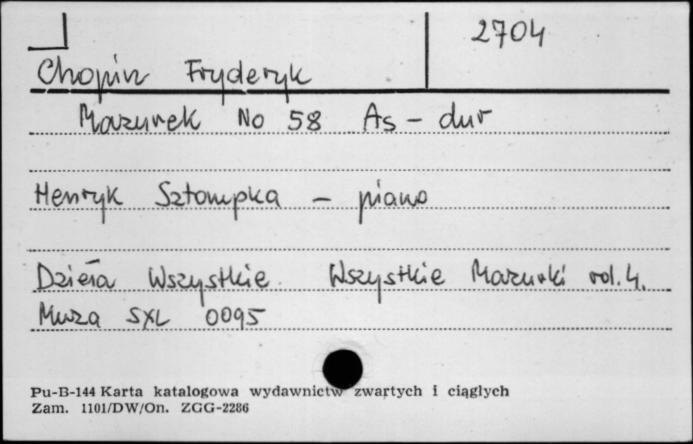 2704
Chopin Fryderyk
Mazurek No 58 As - dur
Henryk Sztompka - piano
Dzieła Wszystkie. Wszystkie Mazurki vol. 4.
Muza SXL 0095
Pu-B-144 Karta katalogowa wydawnictw zwartych i ciągłych
Zam. 1101/DW/On. ZGG-2286